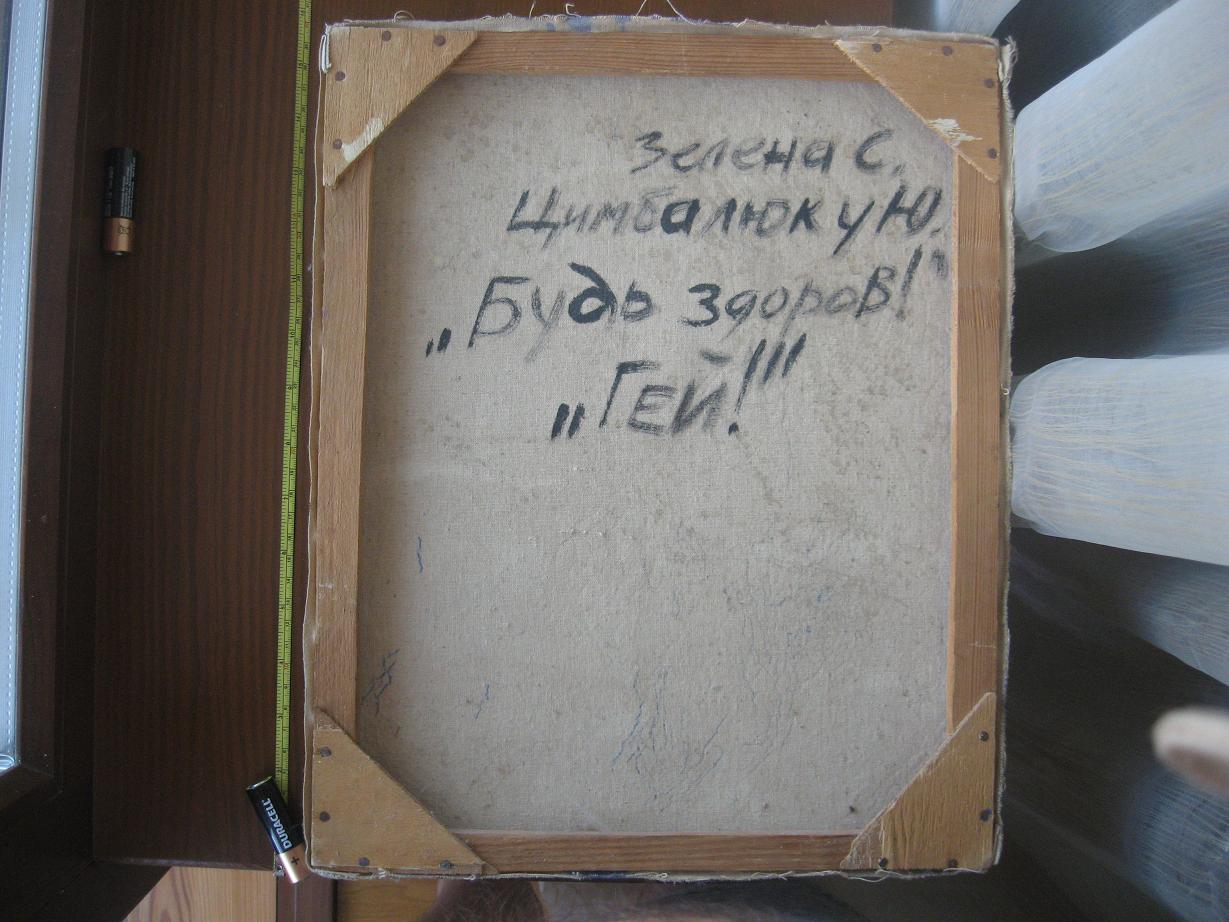 Зелена С.
Цимбалюк у Ю.
„Будь здоров!"
„Гей!"
DURACELL